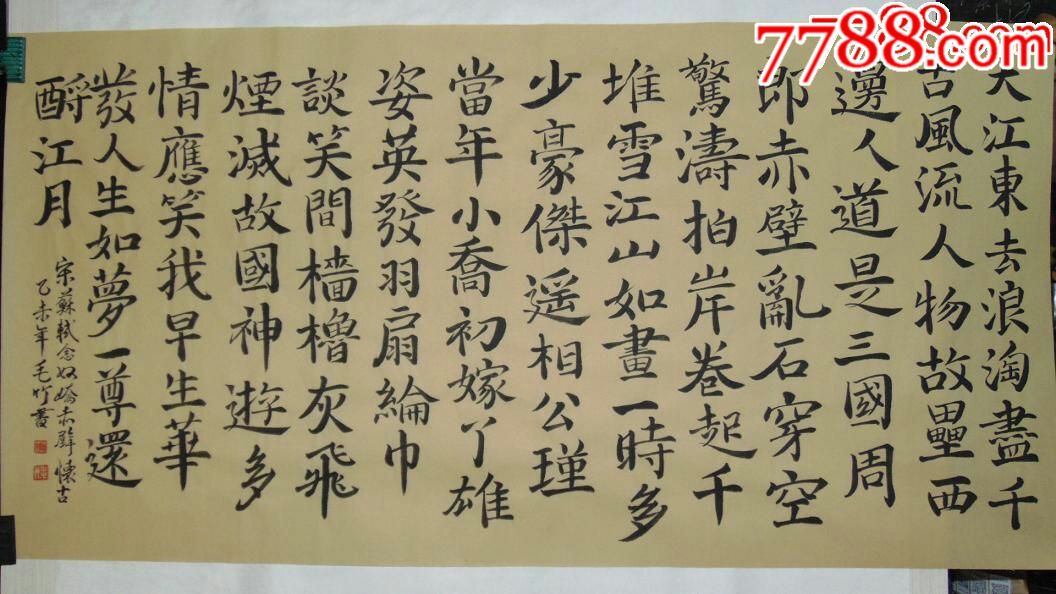 7788
大江東去浪淘盡千
古風流人物故壘西
邊人道是三國周
郎赤壁亂石穿空
驚濤拍岸卷起千
堆雪江山如畫一時多
少豪傑遥相公瑾
當年小喬初嫁丫雄
姿英發羽扇綸巾
談笑間檣櫓灰飛
煙滅故國神遊多
情應笑我早生華
發人生如夢一尊還
酹江月
宋蘇軾念奴嬌赤壁懷古
乙未年毛竹書